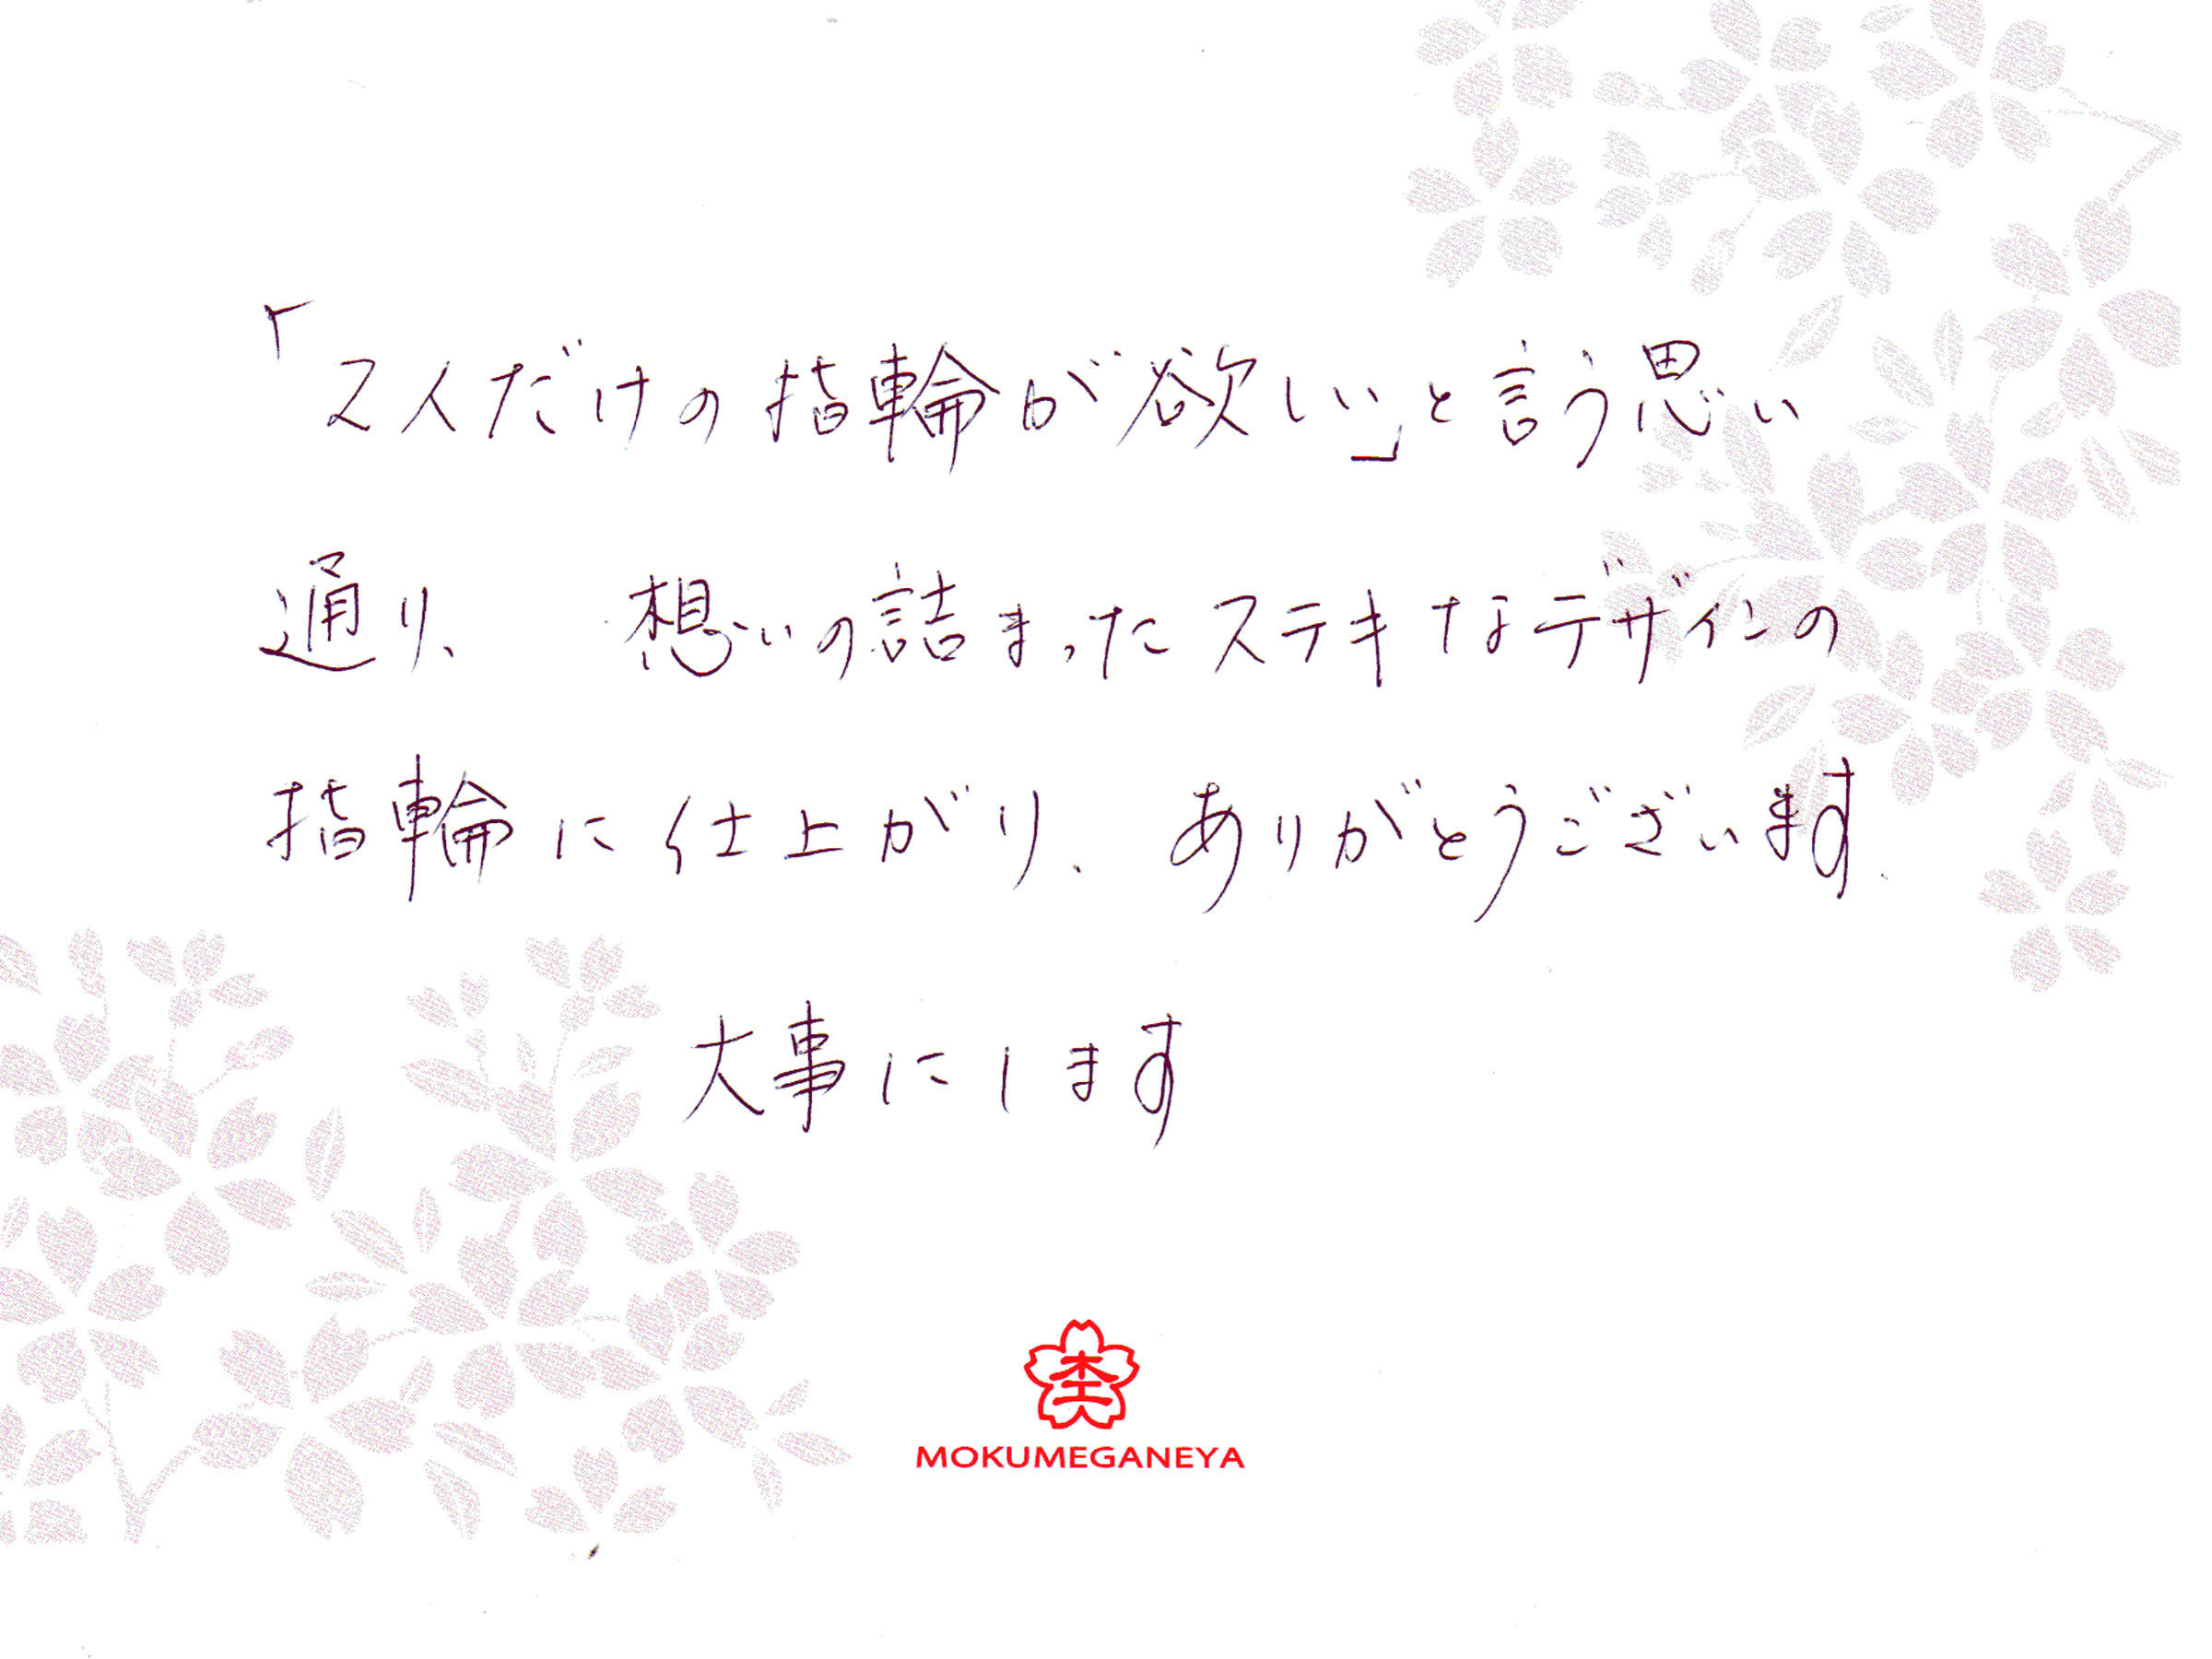 「2人だけの指輪が欲しい」と言う思い
通り、 想いの詰まったステキなデザインの
指輪に仕上がり、ありがとうございます.
大事にします
MOKUMEGANEYA